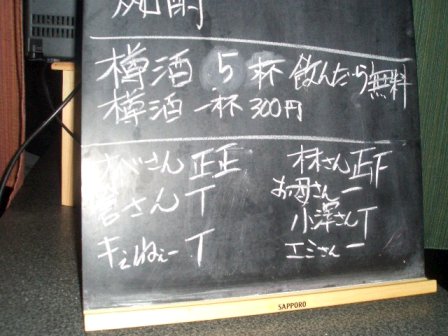 焼酎
樽酒 5杯 飲んだら無料
樽酒 一杯 300円
さん 正正
林さん 正下
さん T
お母さん 一
小澤さん T
T
エミさん 一
SAPPORO